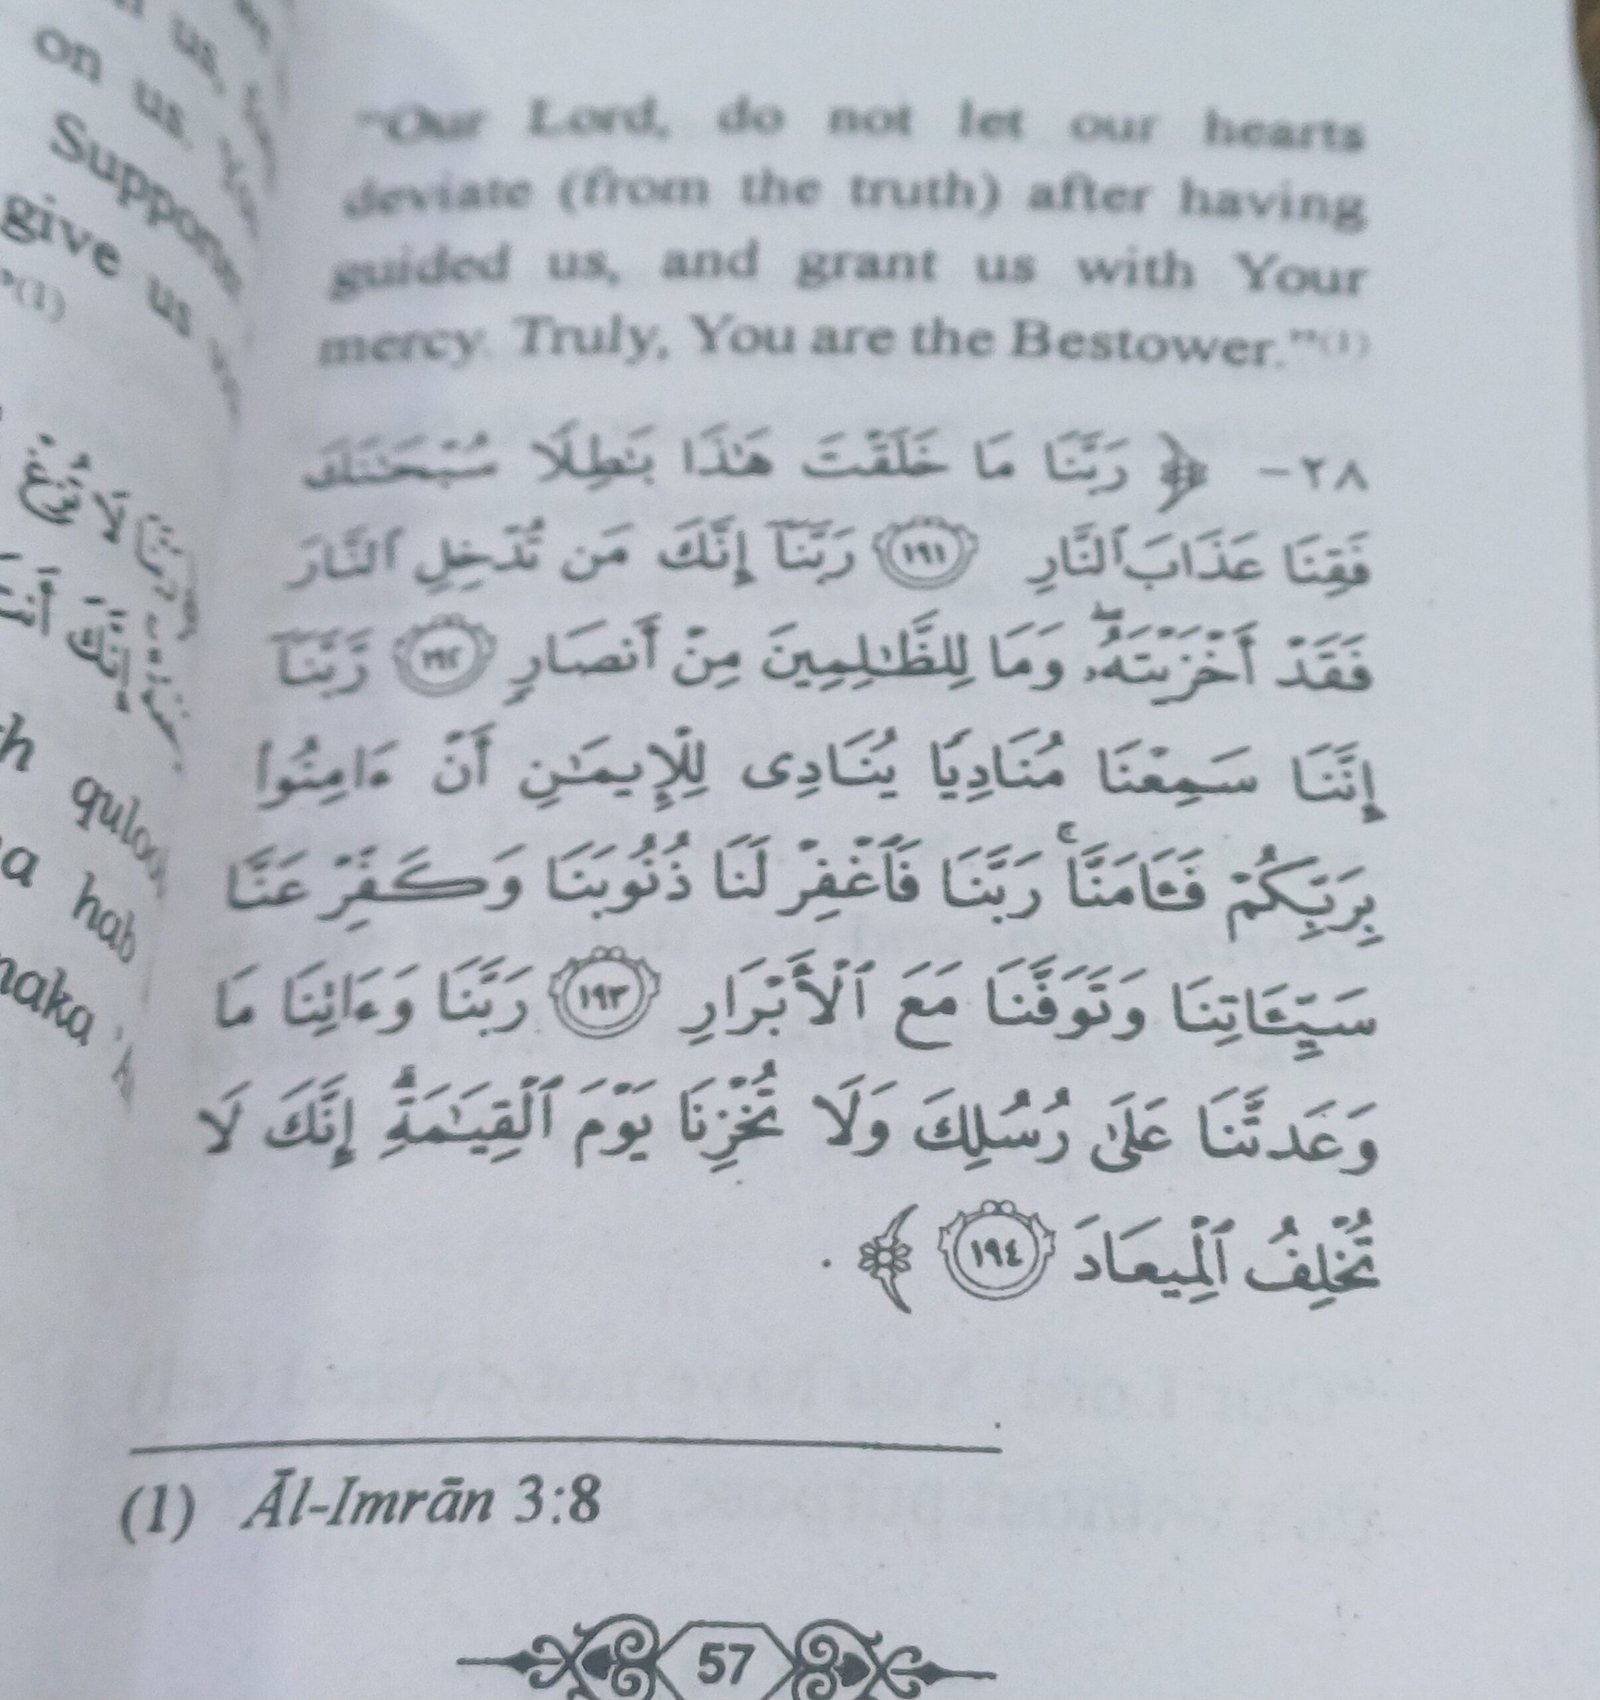 on us.
Support
give us
"(1)
"Our Lord, do not let our hearts
deviate (from the truth) after having
guided us, and grant us with Your
mercy. Truly, You are the Bestower."(1)
٢٨- ﴿ رَبَّنَا مَا خَلَقْتَ هَٰذَا بَٰطِلًا سُبْحَٰنَكَ
فَقِنَا عَذَابَ ٱلنَّارِ ١٩١ رَبَّنَآ إِنَّكَ مَن تُدْخِلِ ٱلنَّارَ
فَقَدْ أَخْزَيْتَهُۥ ۖ وَمَا لِلظَّٰلِمِينَ مِنْ أَنصَارٍ ١٩٢ رَّبَّنَآ
إِنَّنَا سَمِعْنَا مُنَادِيًا يُنَادِى لِلْإِيمَٰنِ أَنْ ءَامِنُوا۟
بِرَبِّكُمْ فَـَٔامَنَّا ۚ رَبَّنَا فَٱغْفِرْ لَنَا ذُنُوبَنَا وَكَفِّرْ عَنَّا
سَيِّـَٔاتِنَا وَتَوَفَّنَا مَعَ ٱلْأَبْرَارِ ١٩٣ رَبَّنَا وَءَاتِنَا مَا
وَعَدتَّنَا عَلَىٰ رُسُلِكَ وَلَا تُخْزِنَا يَوْمَ ٱلْقِيَٰمَةِ ۗ إِنَّكَ لَا
تُخْلِفُ ٱلْمِيعَادَ ١٩٤ ﴾ .
(1) Āl-Imrān 3:8
57